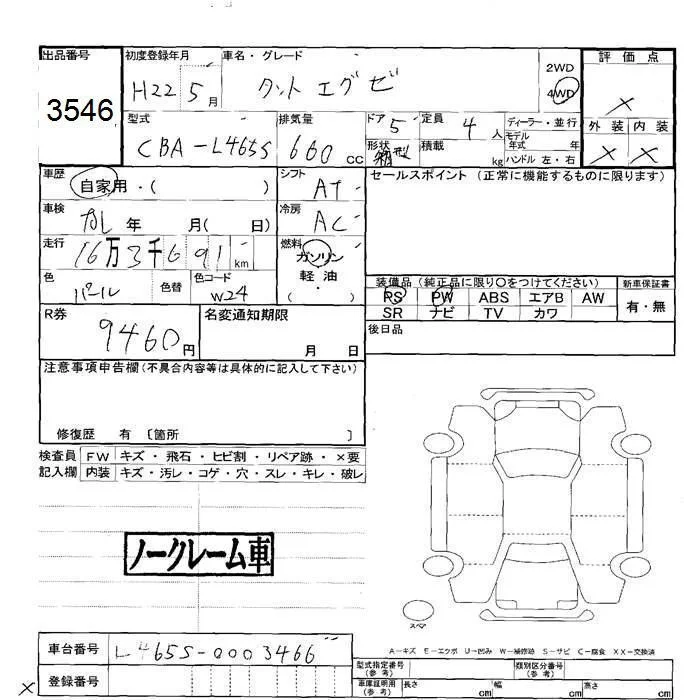 出品番号 初度登録年月 車名・グレード 評価点
3546 H22 5月 タント エグゼ 2WD 4WD ×
型式 排気量 ドア 5 定員 4人 ディーラー・並行 外装 内装
CBA-L465S 660cc 形状 箱型 積載 kg モデル年式 年 ハンドル 左・右 × ×
車歴 自家用・( ) シフト AT セールスポイント (正常に機能するものに限ります)
車検 なし 年 月( 日) 冷房 AC
走行 16万3千691km 燃料 ガソリン 軽油 ( )
色 パール 色替 色コード W24 装備品 (純正品に限り○をつけてください) 新車保証書
PS PW ABS エアB AW 有・無
R券 名変通知期限 SR ナビ TV カワ
9460円 月 日 後日品
注意事項申告欄(不具合内容等は具体的に記入して下さい)
修復歴 有 〔箇所 〕
検査員 FW キズ・飛石・ヒビ割・リペア跡・×要
記入欄 内装 キズ・汚レ・コゲ・穴・スレ・キレ・破レ
ノークレーム車
スペア
A-キズ E-エクボ U-凹み W-補修跡 S-サビ C-腐食 XX-交換済
車台番号 L465S-0003466 型式指定番号(参考) 類別区分番号(参考)
× 登録番号 車庫証明用(参考) 長さ cm 幅 cm 高さ cm